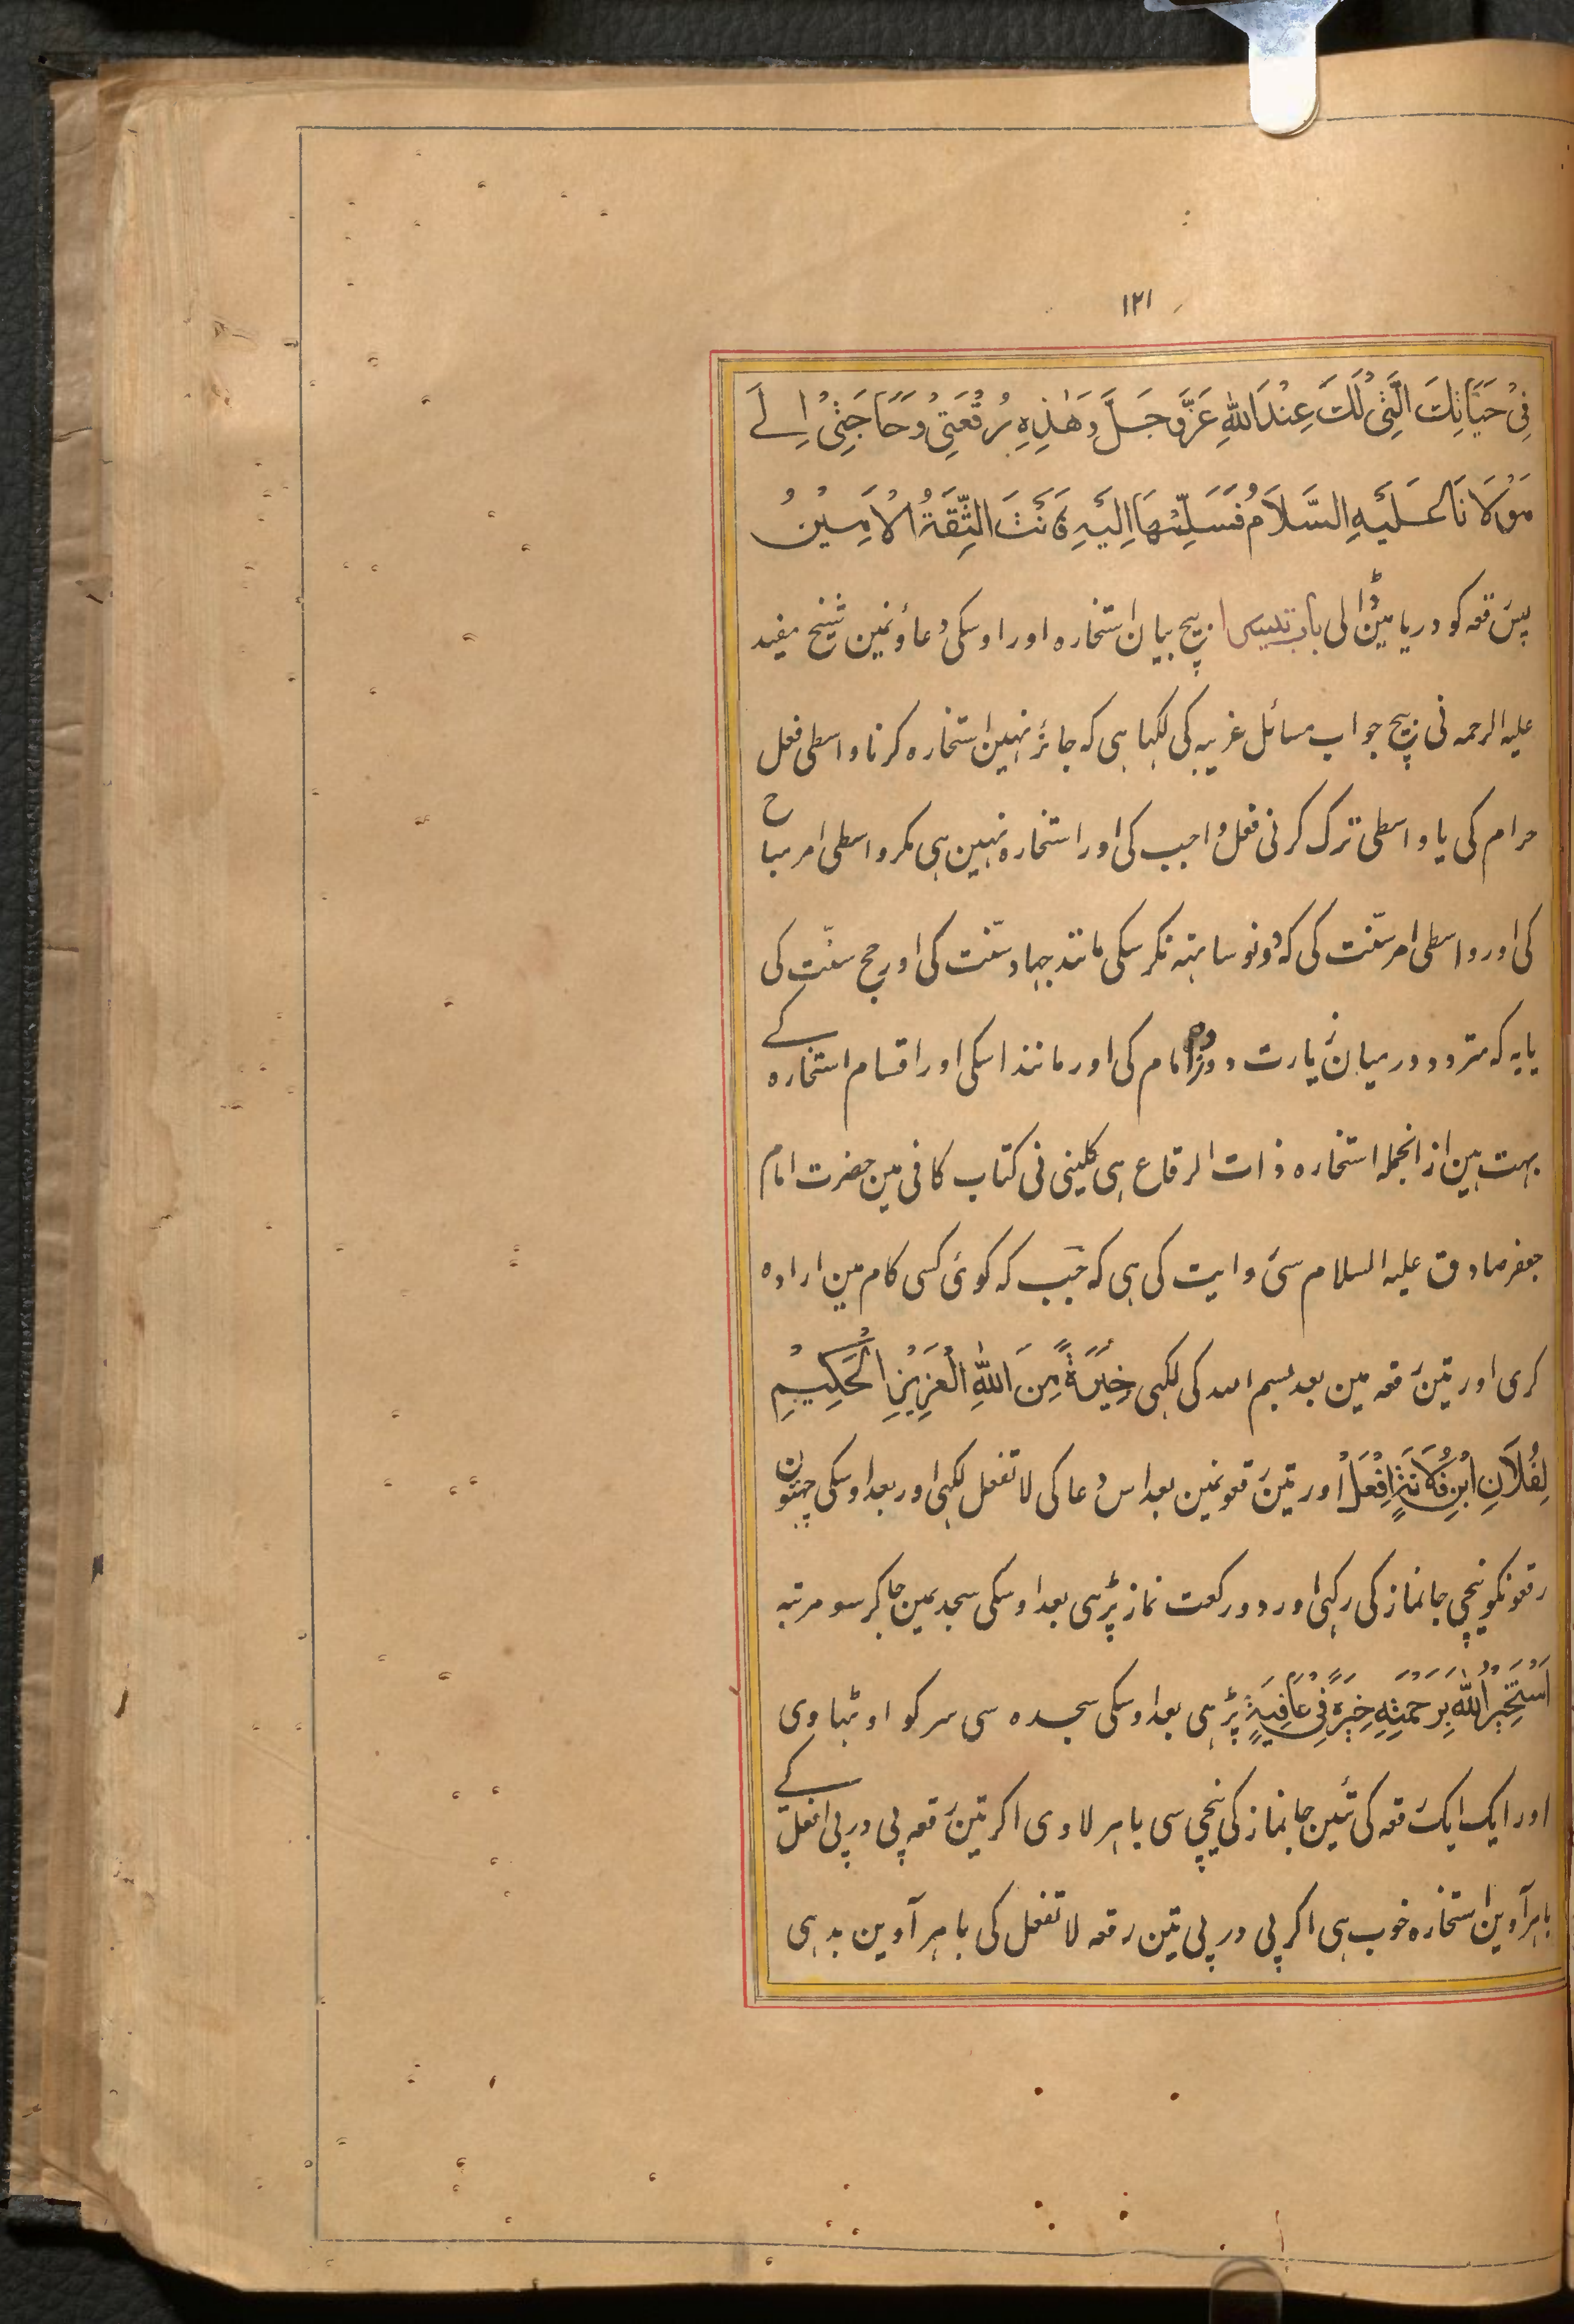 ١٢١
فِیْ حَیَاتِكَ الَّتِیْ لَكَ عِنْدَ اللّٰهِ عَزَّ وَ جَلَّ وَ هٰذِهِ رُقْعَتِیْ وَ حَاجَتِیْ اِلٰے
مَوْلَانَا عَلَیْهِ السَّلَامُ فَسَلِّمْهَا اِلَیْهِ فَاَنْتَ الثِّقَةُ الْاَمِیْنُ
پس رقعہ کو دریا مین ڈالی باب بیچ بیان استخارہ اور اوسکی دعاؤنمین شیخ مفید
علیہ الرحمہ نی بیچ جواب مسائل غریبہ کی لکہا ہی کہ جائز نہین استخارہ کرنا واسطی فعل
حرام کی یا واسطی ترک کرنی فعل واجب کی اور استخارہ نہین ہی مکر واسطی امر مباح
کی اور واسطی امر سنّت کی کہ دونو ساتہہ نکر سکی مانند جہاد سنّت کی اور حج سنّت کی
یا یہ کہ متردد درمیان زیارت دو امام کی اور مانند اسکی اور اقسام استخارہ کے
بہت ہین از انجملہ استخارہ ذات الرقاع ہی کلینی نی کتاب کافی مین حضرت امام
جعفر صادق علیہ السلام سی روایت کی ہی کہ جب کہ کوئی کسی کام مین ارادہ
کری اور تین رقعہ مین بعد بسم اللہ کی لکہی خِیَرَةً مِّنَ اللّٰهِ الْعَزِیْزِ الْحَکِیْمِ
لِفُلَانِ ابْنِ فُلَانَةٍ اِفْعَلْ اور تین رقعونمین بعد اس دعا کی لا تفعل لکہی اور بعد اوسکی چہئون
رقعونکو نیچی جانماز کی رکہی اور دو رکعت نماز پڑہی بعد اوسکی سجدیمین جاکر سو مرتبہ
اَسْتَخِیْرُ اللّٰهَ بِرَحْمَتِهٖ خِیَرَةً فِیْ عَافِیَةٍ پڑہی بعد اوسکی سجدہ سی سر کو اوٹہاوی
اور ایک ایک رقعہ کی تئین جانماز کی نیچی سی باہر لاوی اکر تین رقعہ پی در پی افعل کے
باہر آوین استخارہ خوب ہی اکر پی در پی تین رقعہ لا تفعل کی باہر آوین بد ہی